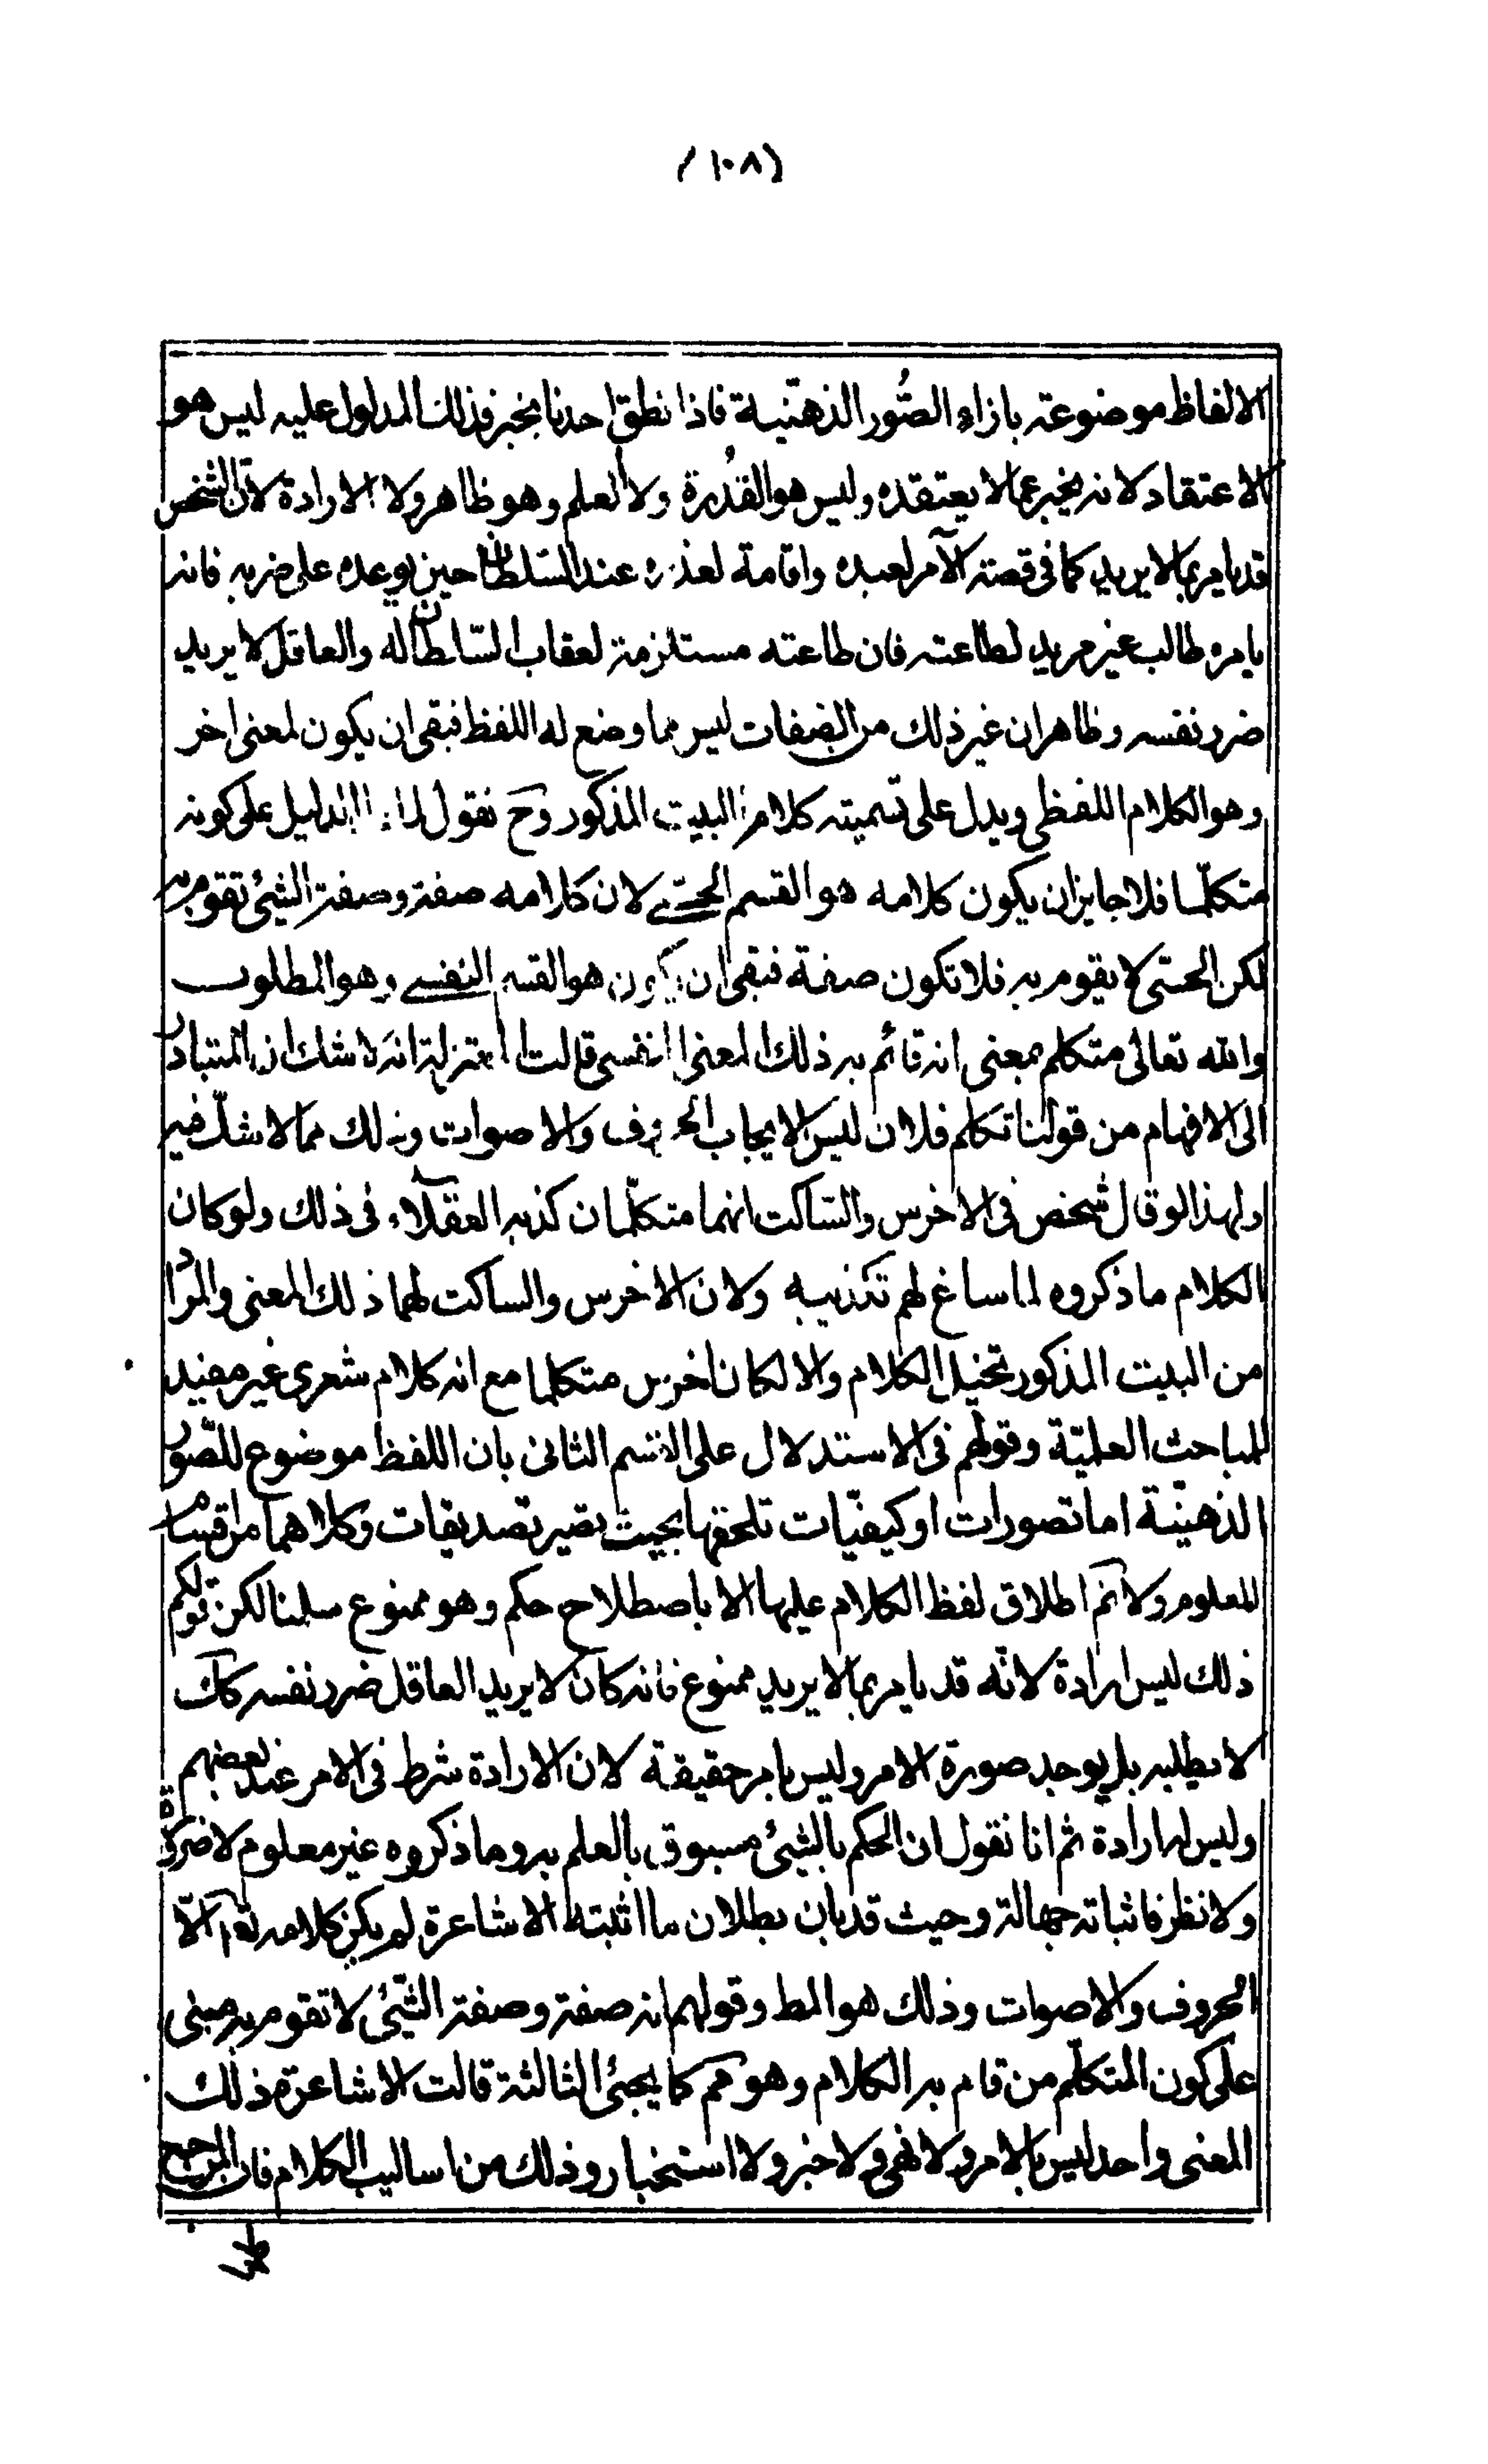 (١٠٨)
الالفاظ موضوعة بازاء الصُّور الذهنّية فاذا نطق احدنا بخبر فذلك المدلول عليه ليس هو
الاعتقاد لانه يخبر عما لا يعتقده وليس هو القُدرة ولا العلم وهو ظاهر ولا الارادة لانّ الشخص
قد يامر بما لا يريد كما فى قصة الآمر لعبده واقامة لعذره عند السّلطان حين يوعده على ضربه فانه
يامره طالب غير مريد لطاعته فان طاعته مستلزمة لعقاب السّلطان له والعاقل لا يريد
ضرر نفسه وظاهر ان غير ذلك من الصفات ليس مما وضع له اللفظ فبقى ان يكون لمعنى اخر
وهو الكلام اللفظى ويدل على تسميته كلاما البيت المذكور وح نقول لما الدليل على كونه
متكلّما فلا جايز ان يكون كلامه هو القسم الحسّى لان كلامه صفة وصفة الشيئ تقوم به
لكن الحسّى لا يقوم به فلا تكون صفة فبقى ان يكون هو القسم النفسى وهو المطلوب
والله تعالى متكلم بمعنى انه قائم به ذلك المعنى النفسى قالت المعتزلة انه لا شك ان المتبادر
الى الافهام من قولنا تكلم فلان ليس الا يجاب الحروف والاصوات وذلك مما لا شكّ فيه
ولهذا لو قال شخص فى الاخرس والسّاكت انهما متكلّمان كذبه العقلاء فى ذلك ولو كان
الكلام ما ذكروه لما ساغ لهم تكذيبه ولان الاخرس والساكت لهما ذلك المعنى والمراد
من البيت المذكور تخيل الكلام والا لكان اخرس متكلما مع انه كلام شعرى غير مفيد
للمباحث العلميّة وقولهم فى الاستدلال على القسم الثانى بان اللفظ موضوع للصّور
الذهنيّة اما تصورات او كيفيّات تلحقها بحيث تصير تصديقات وكلاهما من اقسام
المعلوم ولا نم اطلاق لفظ الكلام عليها الا باصطلاح حكم وهو ممنوع سلمنا لكن قولكم
ذلك ليس ارادة لانّه قد يامر بما لا يريد ممنوع فانه كان لا يريد العاقل ضرر نفسه كك
لا يطلبه بل يوجد صورة الامر وليس بامر حقيقة لان الارادة شرط فى الامر عند بعضهم
وليس لها ارادة ثم انا نقول ان الحكم بالشيئ مسبوق بالعلم به وما ذكروه غير معلوم لا ضرورة
ولا نظر فاثباته جهالة وحيث قد بان بطلان ما اثبته الاشاعرة لم يكن كلامه تعم الّا
الحروف والاصوات وذلك هو المط وقولهم انه صفة وصفة الشّيئ لا تقوم به مبنى
على كون المتكلّم من قام به الكلام وهو مم كما يجيئ الثالثة قالت الاشاعرة ذلك
المعنى واحد ليس بالامر ولا نهى ولا خبر ولا استخبار وذلك من اساليب الكلام فان المرجح